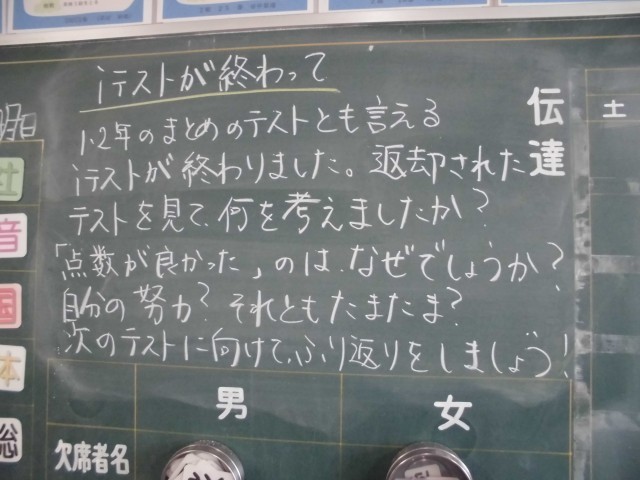 iテストが終わって
1.2年のまとめのテストとも言える
iテストが終わりました。返却された
テストを見て、何を考えましたか?
「点数が良かった」のは、なぜでしょうか?
自分の努力?それともたまたま?
次のテストに向けて、ふり返りをしましょう!
伝達
土
明日
社
音
国
本
総
男
女
欠席者名